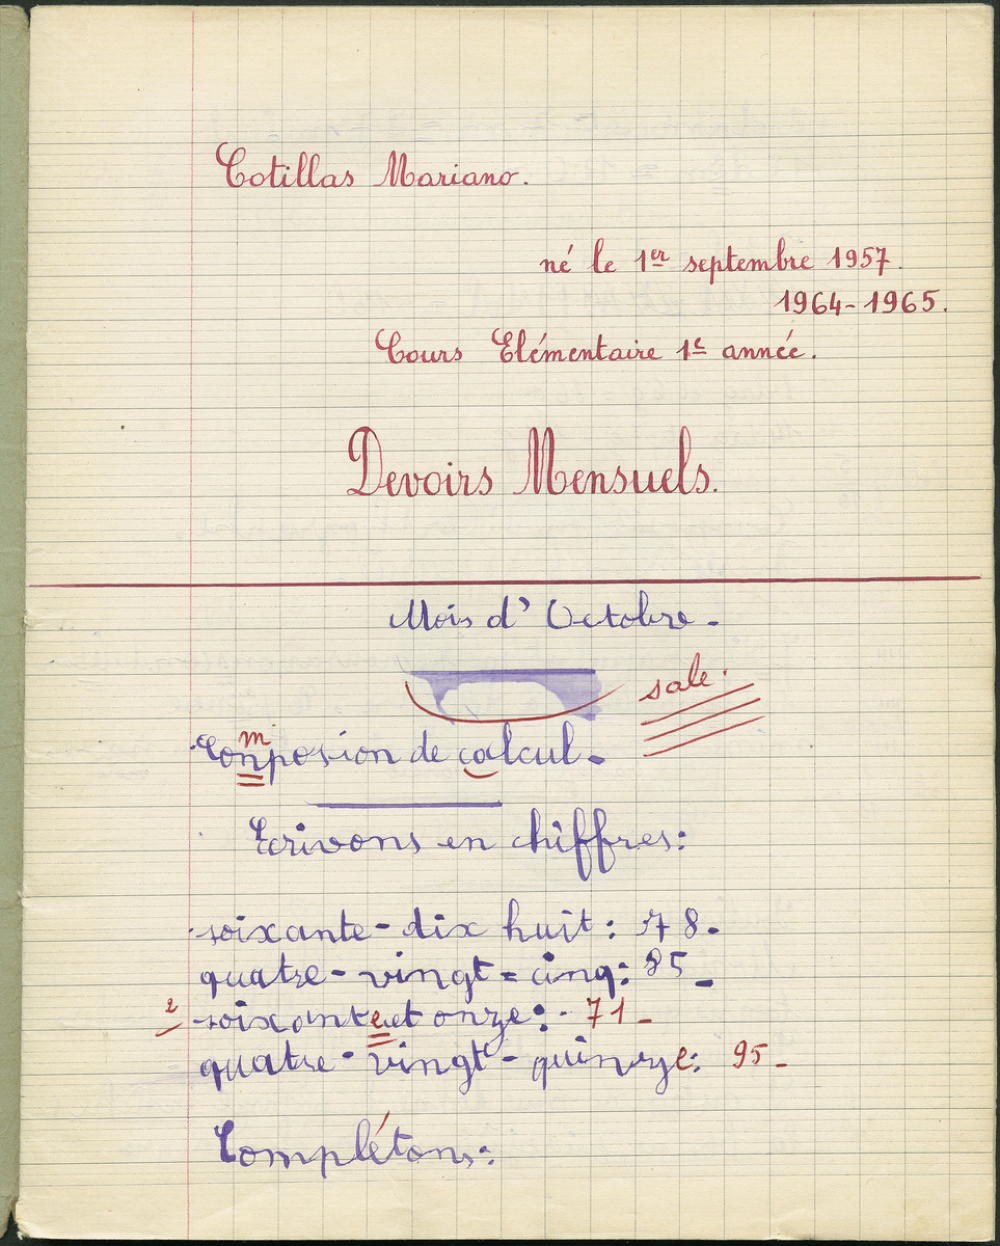 Cotillas Mariano.
né le 1er septembre 1957.
1964-1965.
Cours Elémentaire 1e année.
Devoirs Mensuels.
Mois d'Octobre.
sale.
m
Conposion de calcul.
Ecrivons en chiffres:
soixante-dix huit: 78.
quatre-vingt=cinq: 85
2 soixante et onze: 71
quatre-vingt-quinze: 95
Complétons: